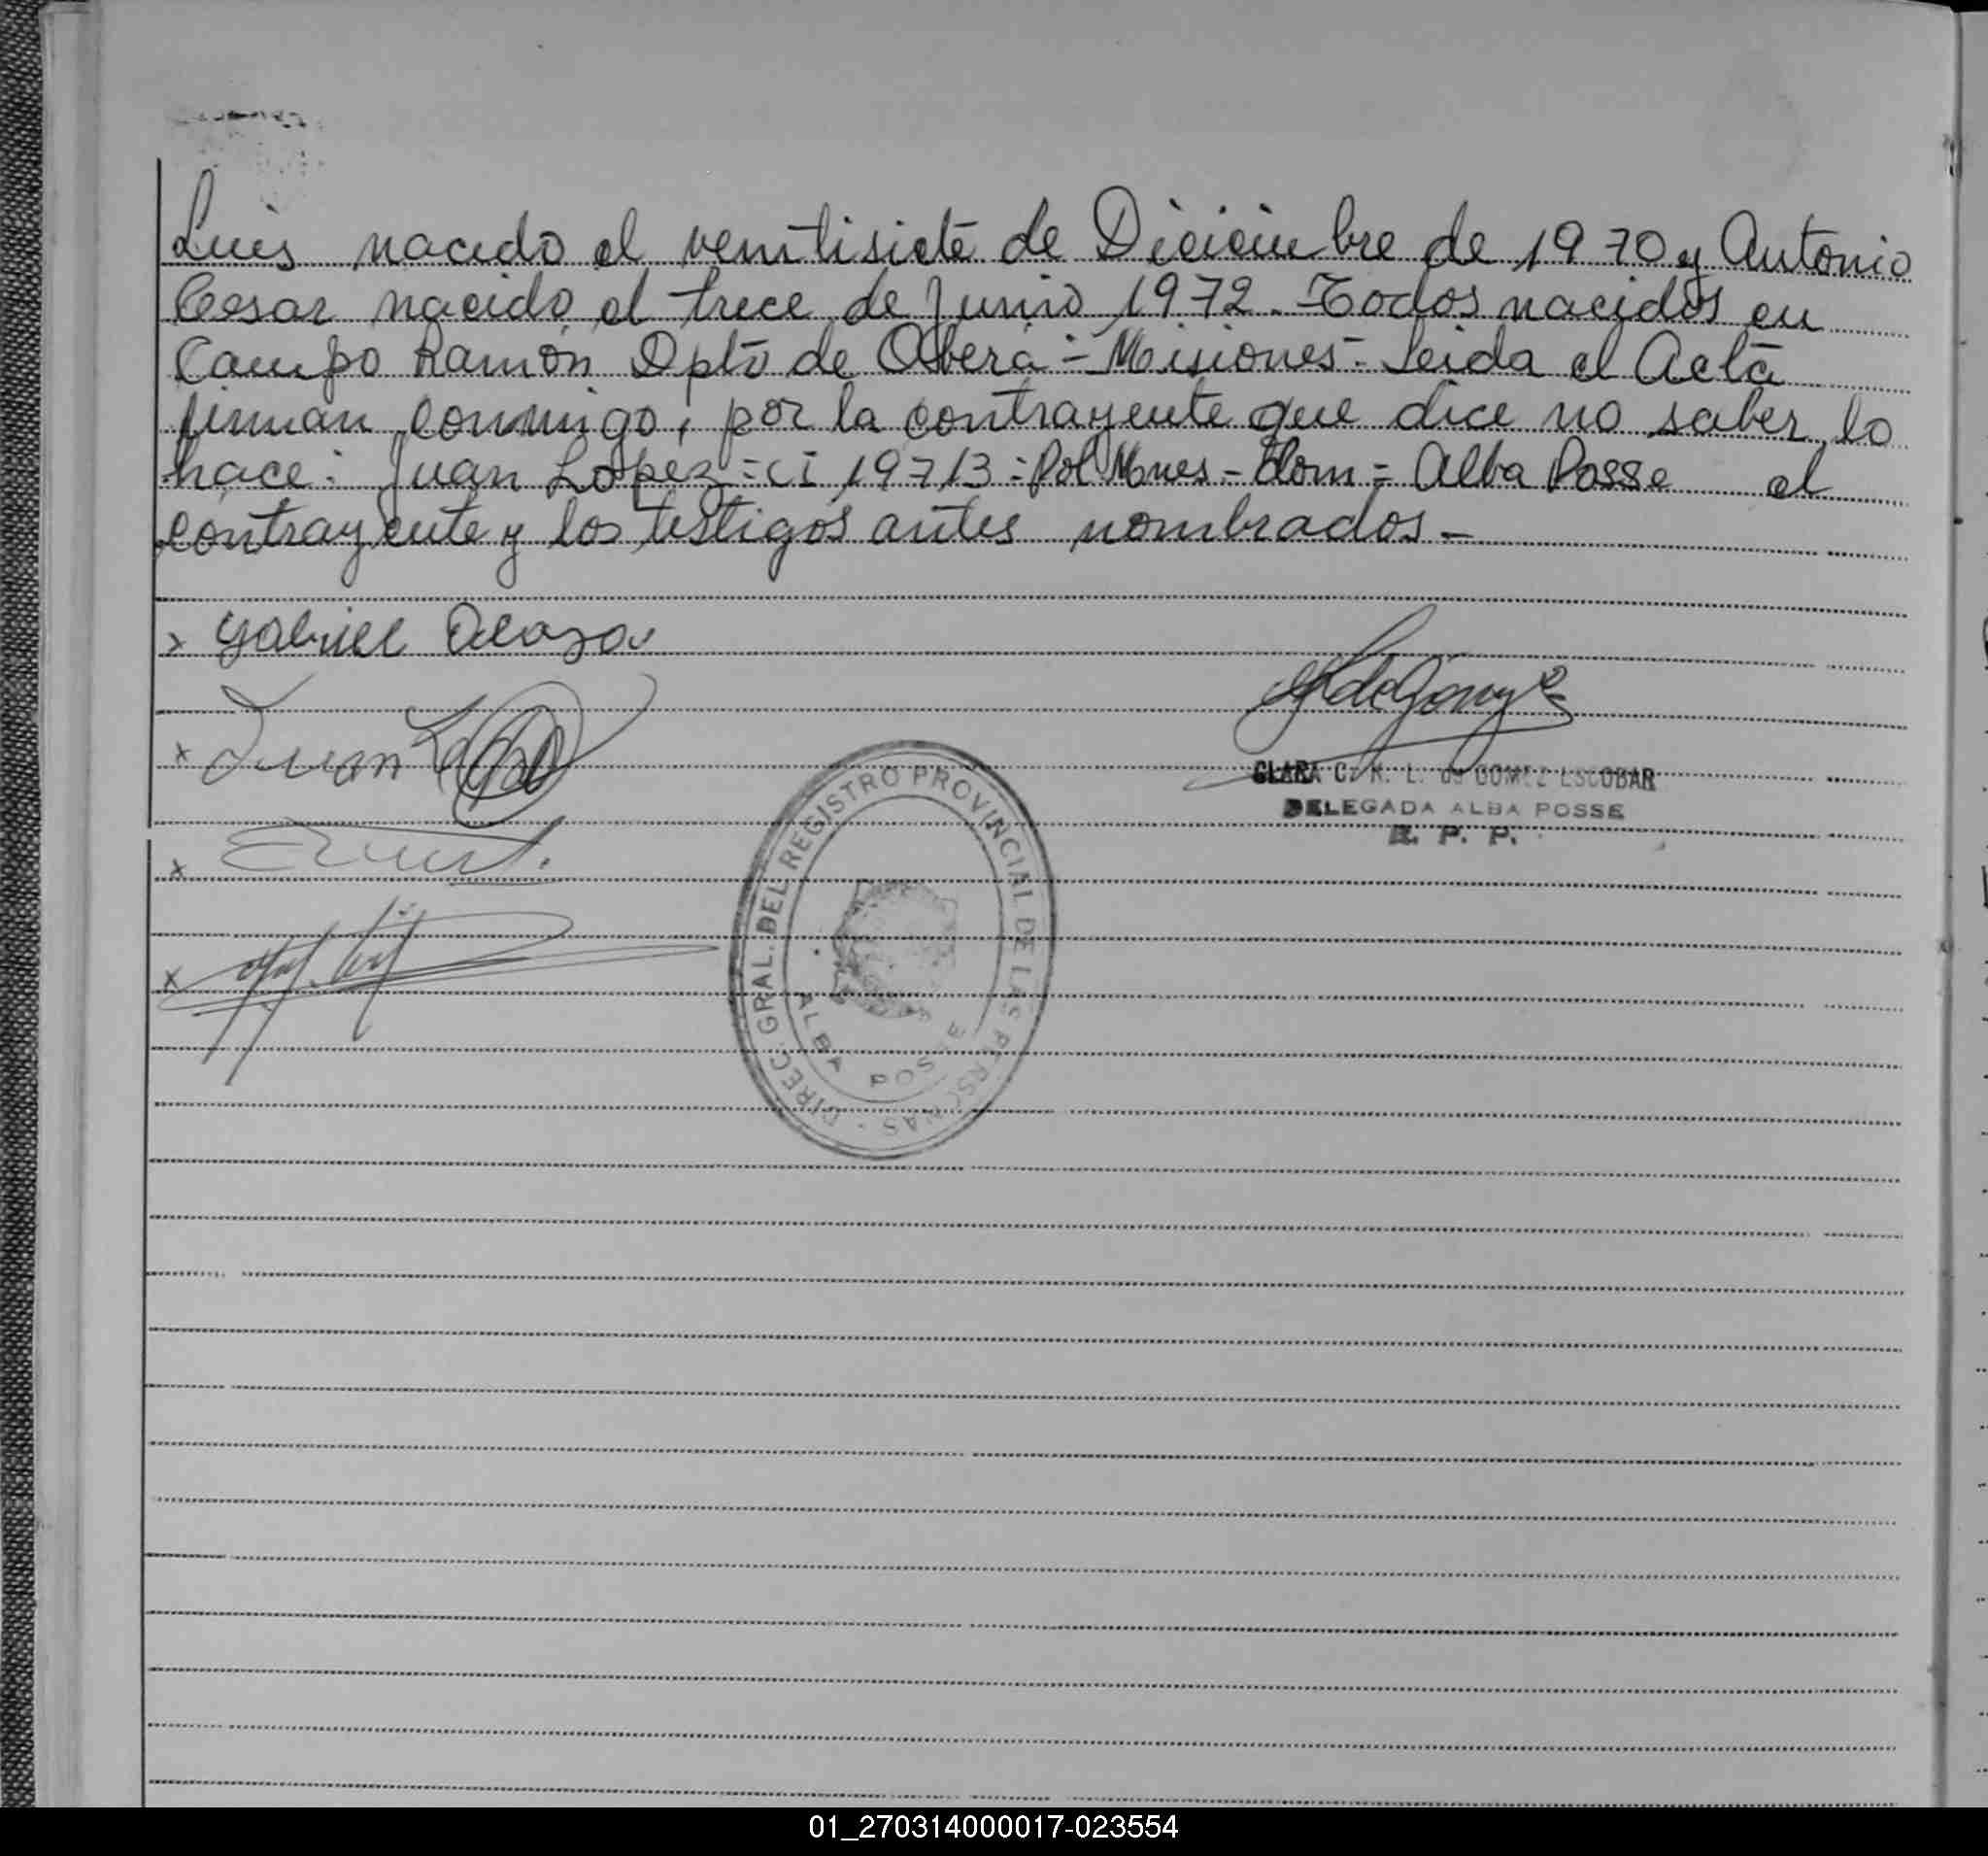 Luis nacido el ventisiete de Diciembre de 1970 y Antonio
Cesar nacido el trece de Junio 1972. Todos nacidos en
Campo Ramón Dpto de Oberá - Misiones - Leida el Acta
firman conmigo, por la contrayente que dice no saber lo
hace: Juan Lopez = CI 19713 - Pol Mnes - Dom = Alba Posse el
contrayente y los testigos antes nombrados -
x Gabriel
x Juan
x
x
CLARA C. N. L. de GOMEZ ESCOBAR
DELEGADA ALBA POSSE
R. P. P.
DIREC. GRAL. DEL REGISTRO PROVINCIAL DE LAS PERSONAS -
ALBA POSSE
01_270314000017-023554